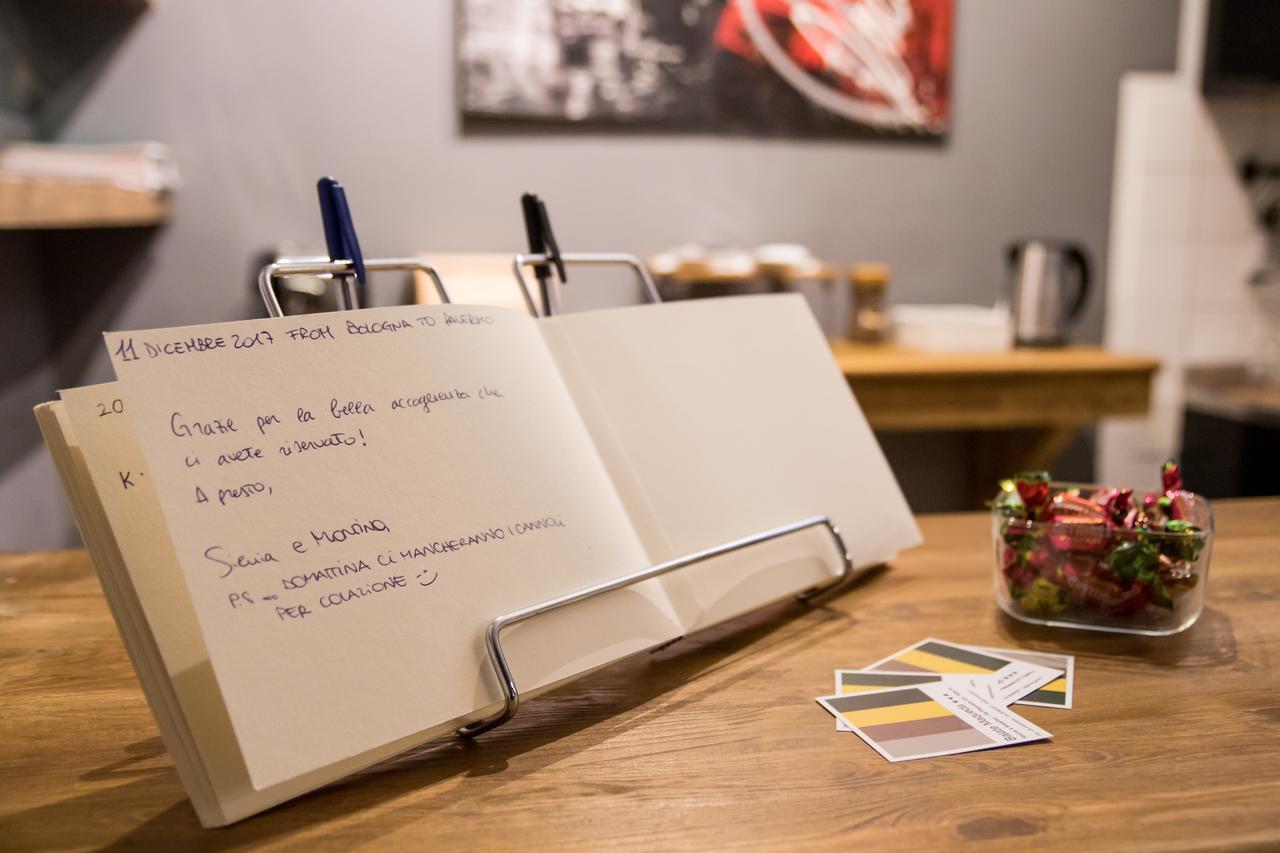 11 DICEMBRE 2017 FROM BOLOGNA TO PALERMO
20
Grazie per la bella accoglienza che
ci avete riservato!
K.
A presto,
Silvia e Monica
P.S → DOMATTINA CI MANCHERANNO I CANNOLI
PER COLAZIONE :)